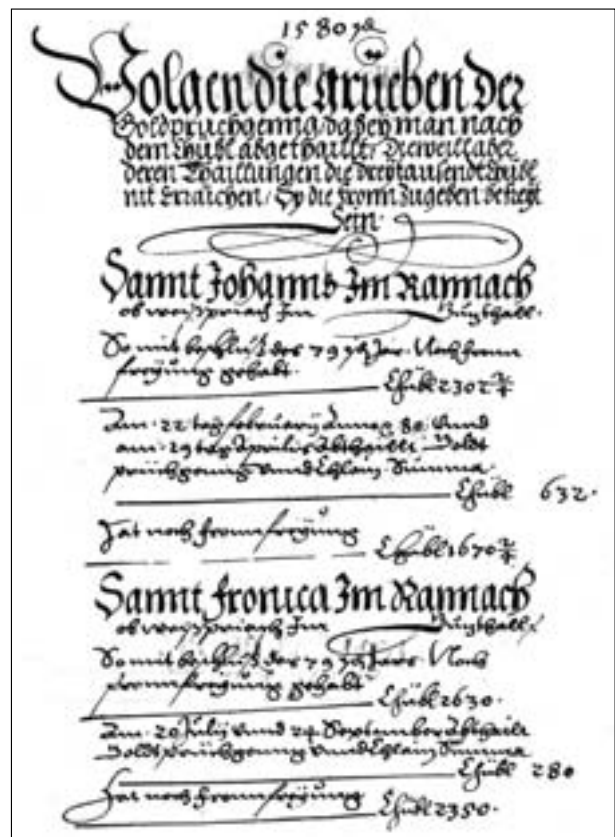 1580
Volgen die grueben der
Goldpruchgenng, dabey man nach
dem Khübl abgethaillt, Dieweill aber
deren Thaillungen die dreytausendt Khübl
nit Erraichen, So die fronn zugeben befreyt
Sein.
Sannt Johanns Im Rannach
ob weyspriach Im
So mit beschluß des 79 Jar. Noch fronn
freyung gehabt.
Khübl 2302
Am 22 tag february Anno 80 vnnd
am 29 tag Aprilis Abthaillt Goldt
prüchgenng vnnd Khlain Summa
Khübl 632.
Hat noch fronnfreyung
Khübl 1670
Sannt fronica Im Rannach
ob weyspriach Im
So mit beschluß des 79 Jars Noch
fronnfreyung gehabt
Khübl 2630.
Am 20 July vnnd 24 September Abthailt
Goldtprüchgenng vnnd Khlain Summa
Khübl 280
Hat noch fronnfreyung
Khübl 2350.